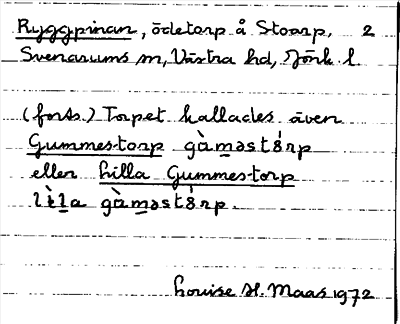 Ryggpinan, ödetorp å Stoarp, 2
Svenarums sn, Västra hd, Jönk. l.
(forts.) Torpet kallades även
Gummestorp gàm̲əstɞ́rp
eller Lilla Gummestorp
lìl̲a gàm̲əstɞ́rp.
Louise H. Maas 1972